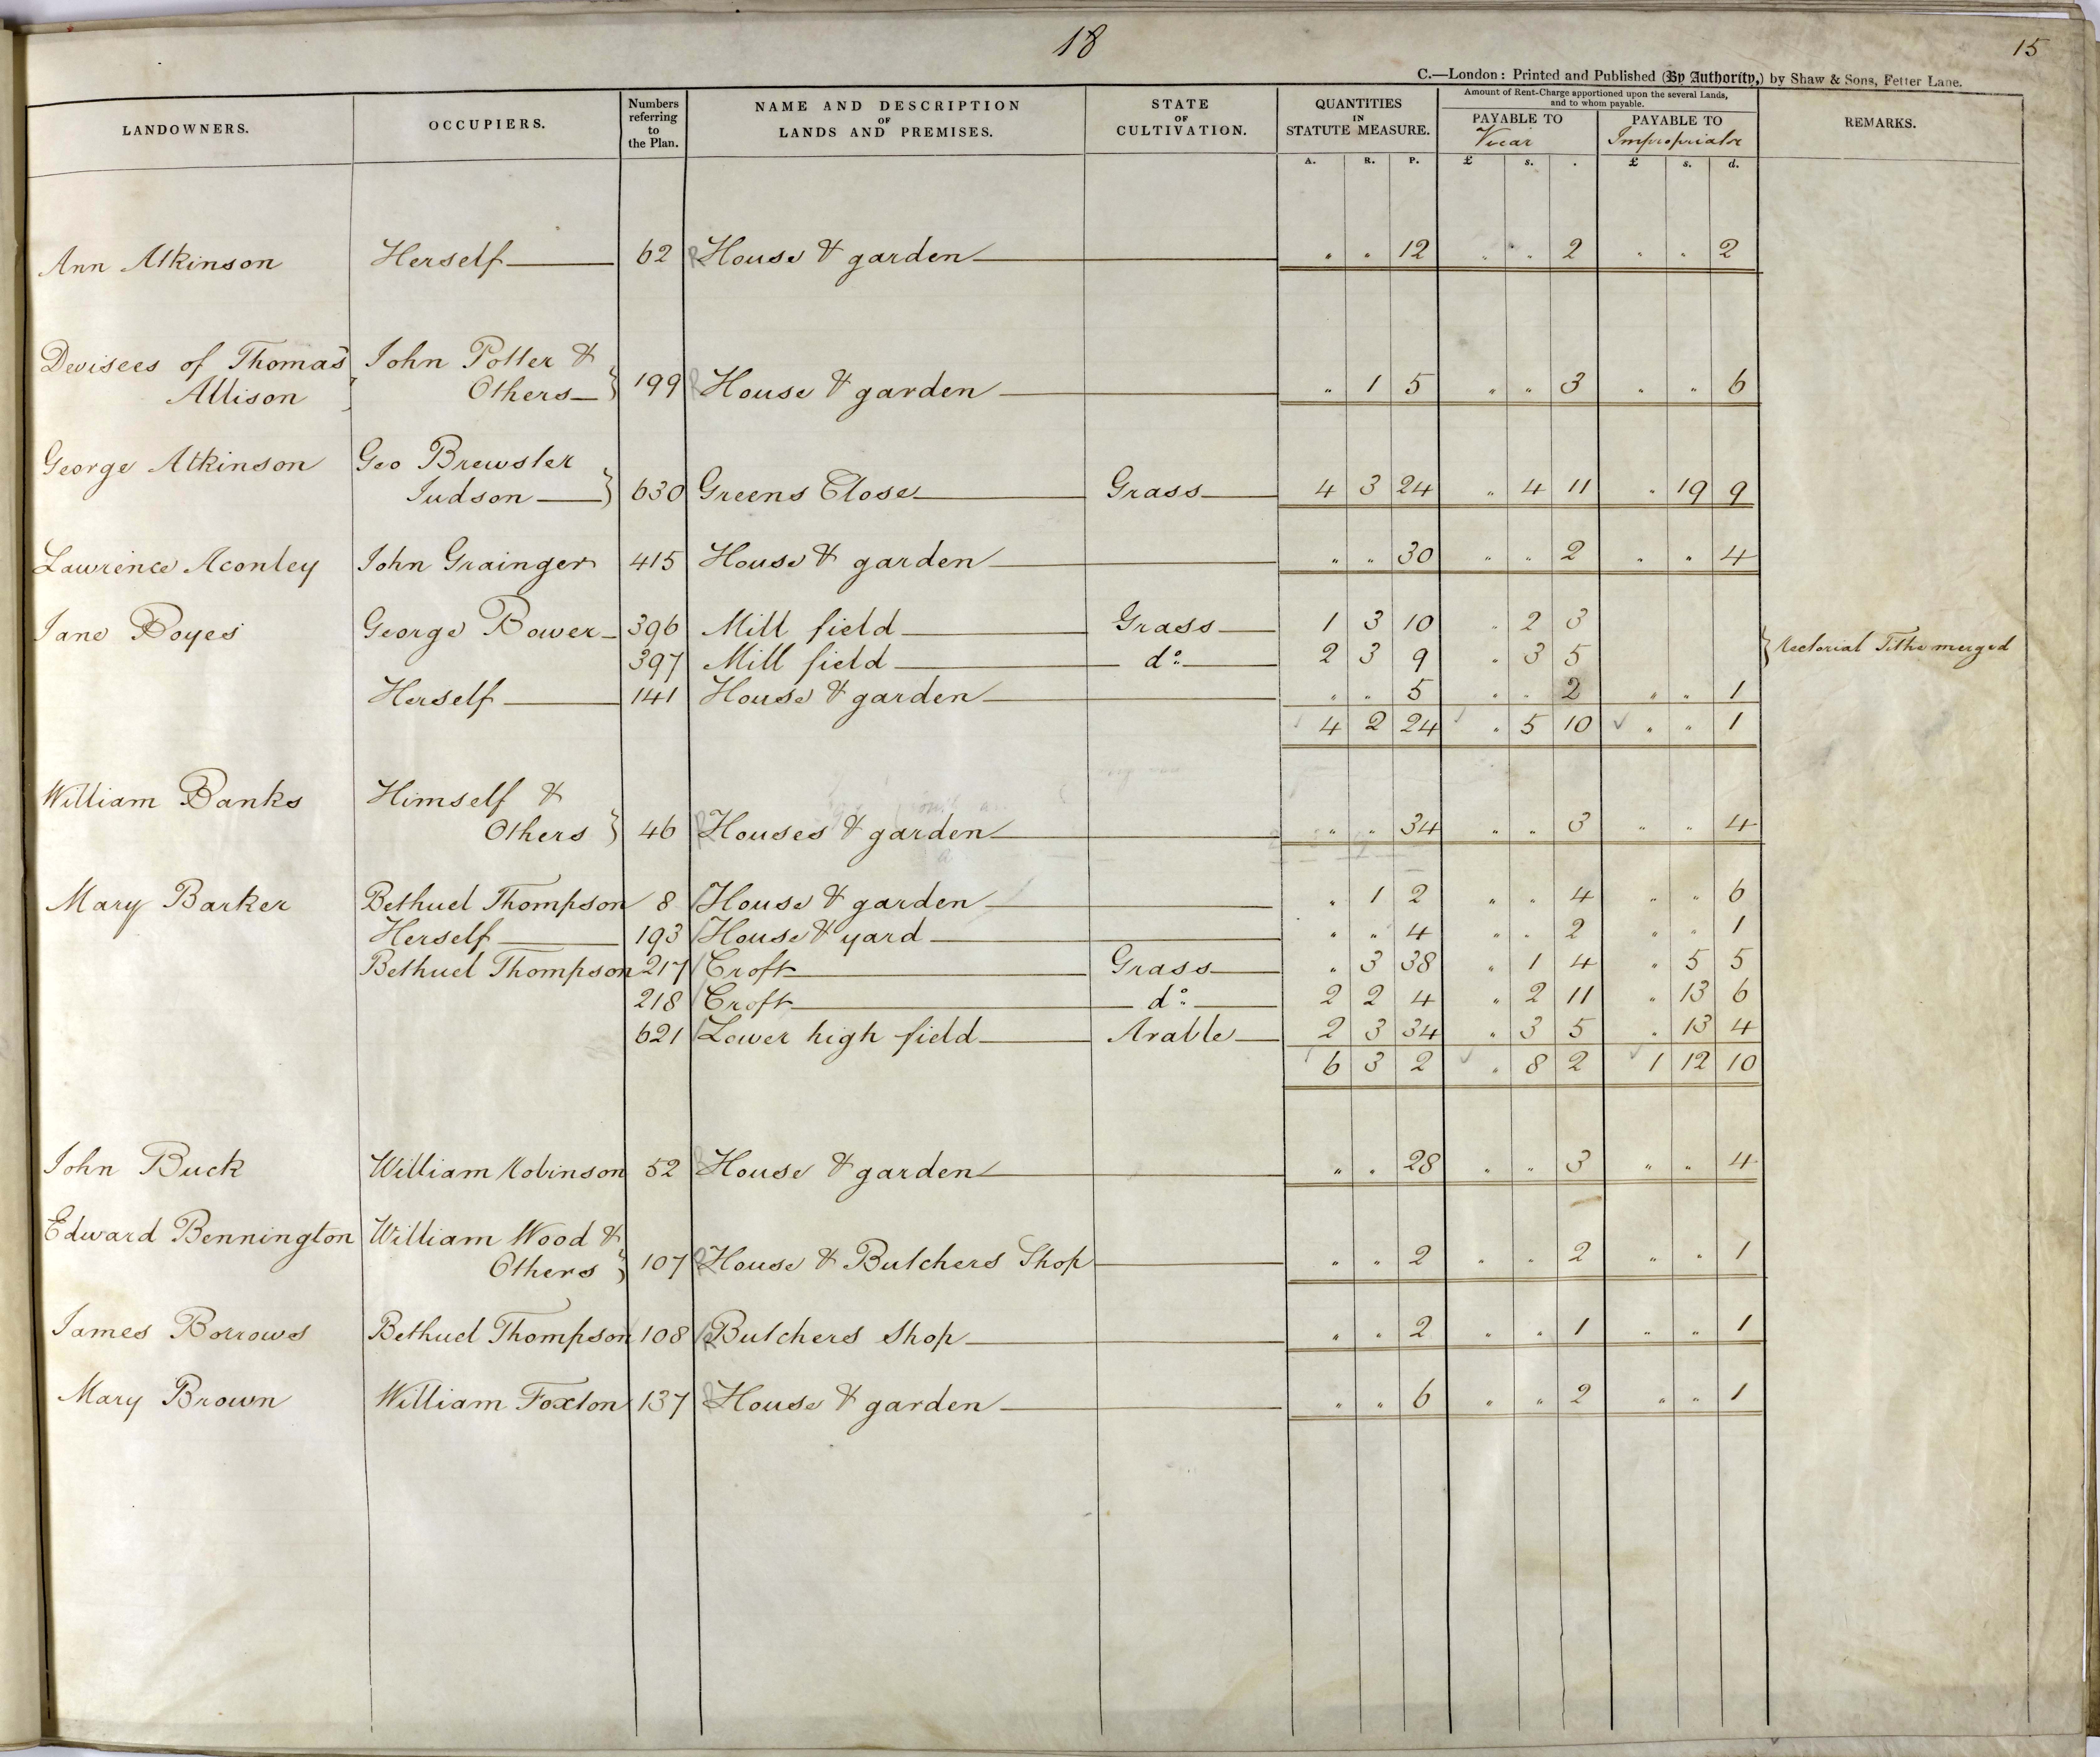 18
15
C.—London: Printed and Published (By Authority,) by Shaw & Sons, Fetter Lane.
LANDOWNERS. OCCUPIERS. Numbers referring to the Plan. NAME AND DESCRIPTION OF LANDS AND PREMISES. STATE OF CULTIVATION. QUANTITIES IN STATUTE MEASURE. Amount of Rent-Charge apportioned upon the several Lands, and to whom payable. PAYABLE TO Vicar PAYABLE TO Impropriator REMARKS.
A. R. P. £ s. . £ s. d.
Ann Atkinson Herself 62 House & garden " " 12 " " 2 " " 2
Devisees of Thomas John Potter &
Allison Others } 199 House & garden " 1 5 " " 3 " " 6
George Atkinson Geo Brewster
Judson } 630 Greens Close Grass 4 3 24 " 4 11 " 19 9
Lawrence Aconley John Grainger 415 House & garden " " 30 " " 2 " " 4
Jane Boyes George Bower 396 Mill field Grass 1 3 10 " 2 3
397 Mill field do 2 3 9 " 3 5 } Rectorial Tithe merged
Herself 141 House & garden " " 5 " " 2 " " 1
4 2 24 " 5 10 " " 1
William Banks Himself &
Others } 46 Houses & garden " " 34 " " 3 " " 4
Mary Barker Bethuel Thompson 8 House & garden " 1 2 " " 4 " " 6
Herself 193 House & yard " " 4 " " 2 " " 1
Bethuel Thompson 217 Croft Grass " 3 38 " 1 4 " 5 5
218 Croft do 2 2 4 " 2 11 " 13 6
621 Lower high field Arable 2 3 34 " 3 5 " 13 4
6 3 2 " 8 2 1 12 10
John Buck William Robinson 52 House & garden " " 28 " " 3 " " 4
Edward Bennington William Wood &
Others } 107 House & Butchers Shop " " 2 " " 2 " " 1
James Borrows Bethuel Thompson 108 Butchers Shop " " 2 " " 1 " " 1
Mary Brown William Foxton 137 House & garden " " 6 " " 2 " " 1